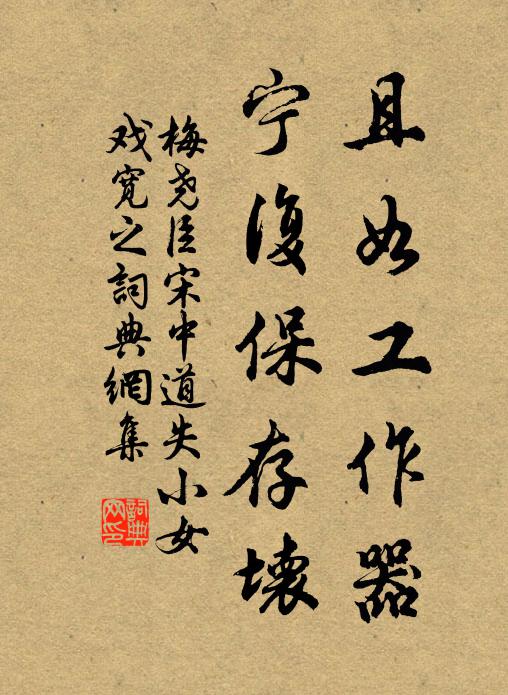 且如工作器
宁復保存壞
梅尧臣宋中道失小女
戏寬之詞典網集
詞典网印